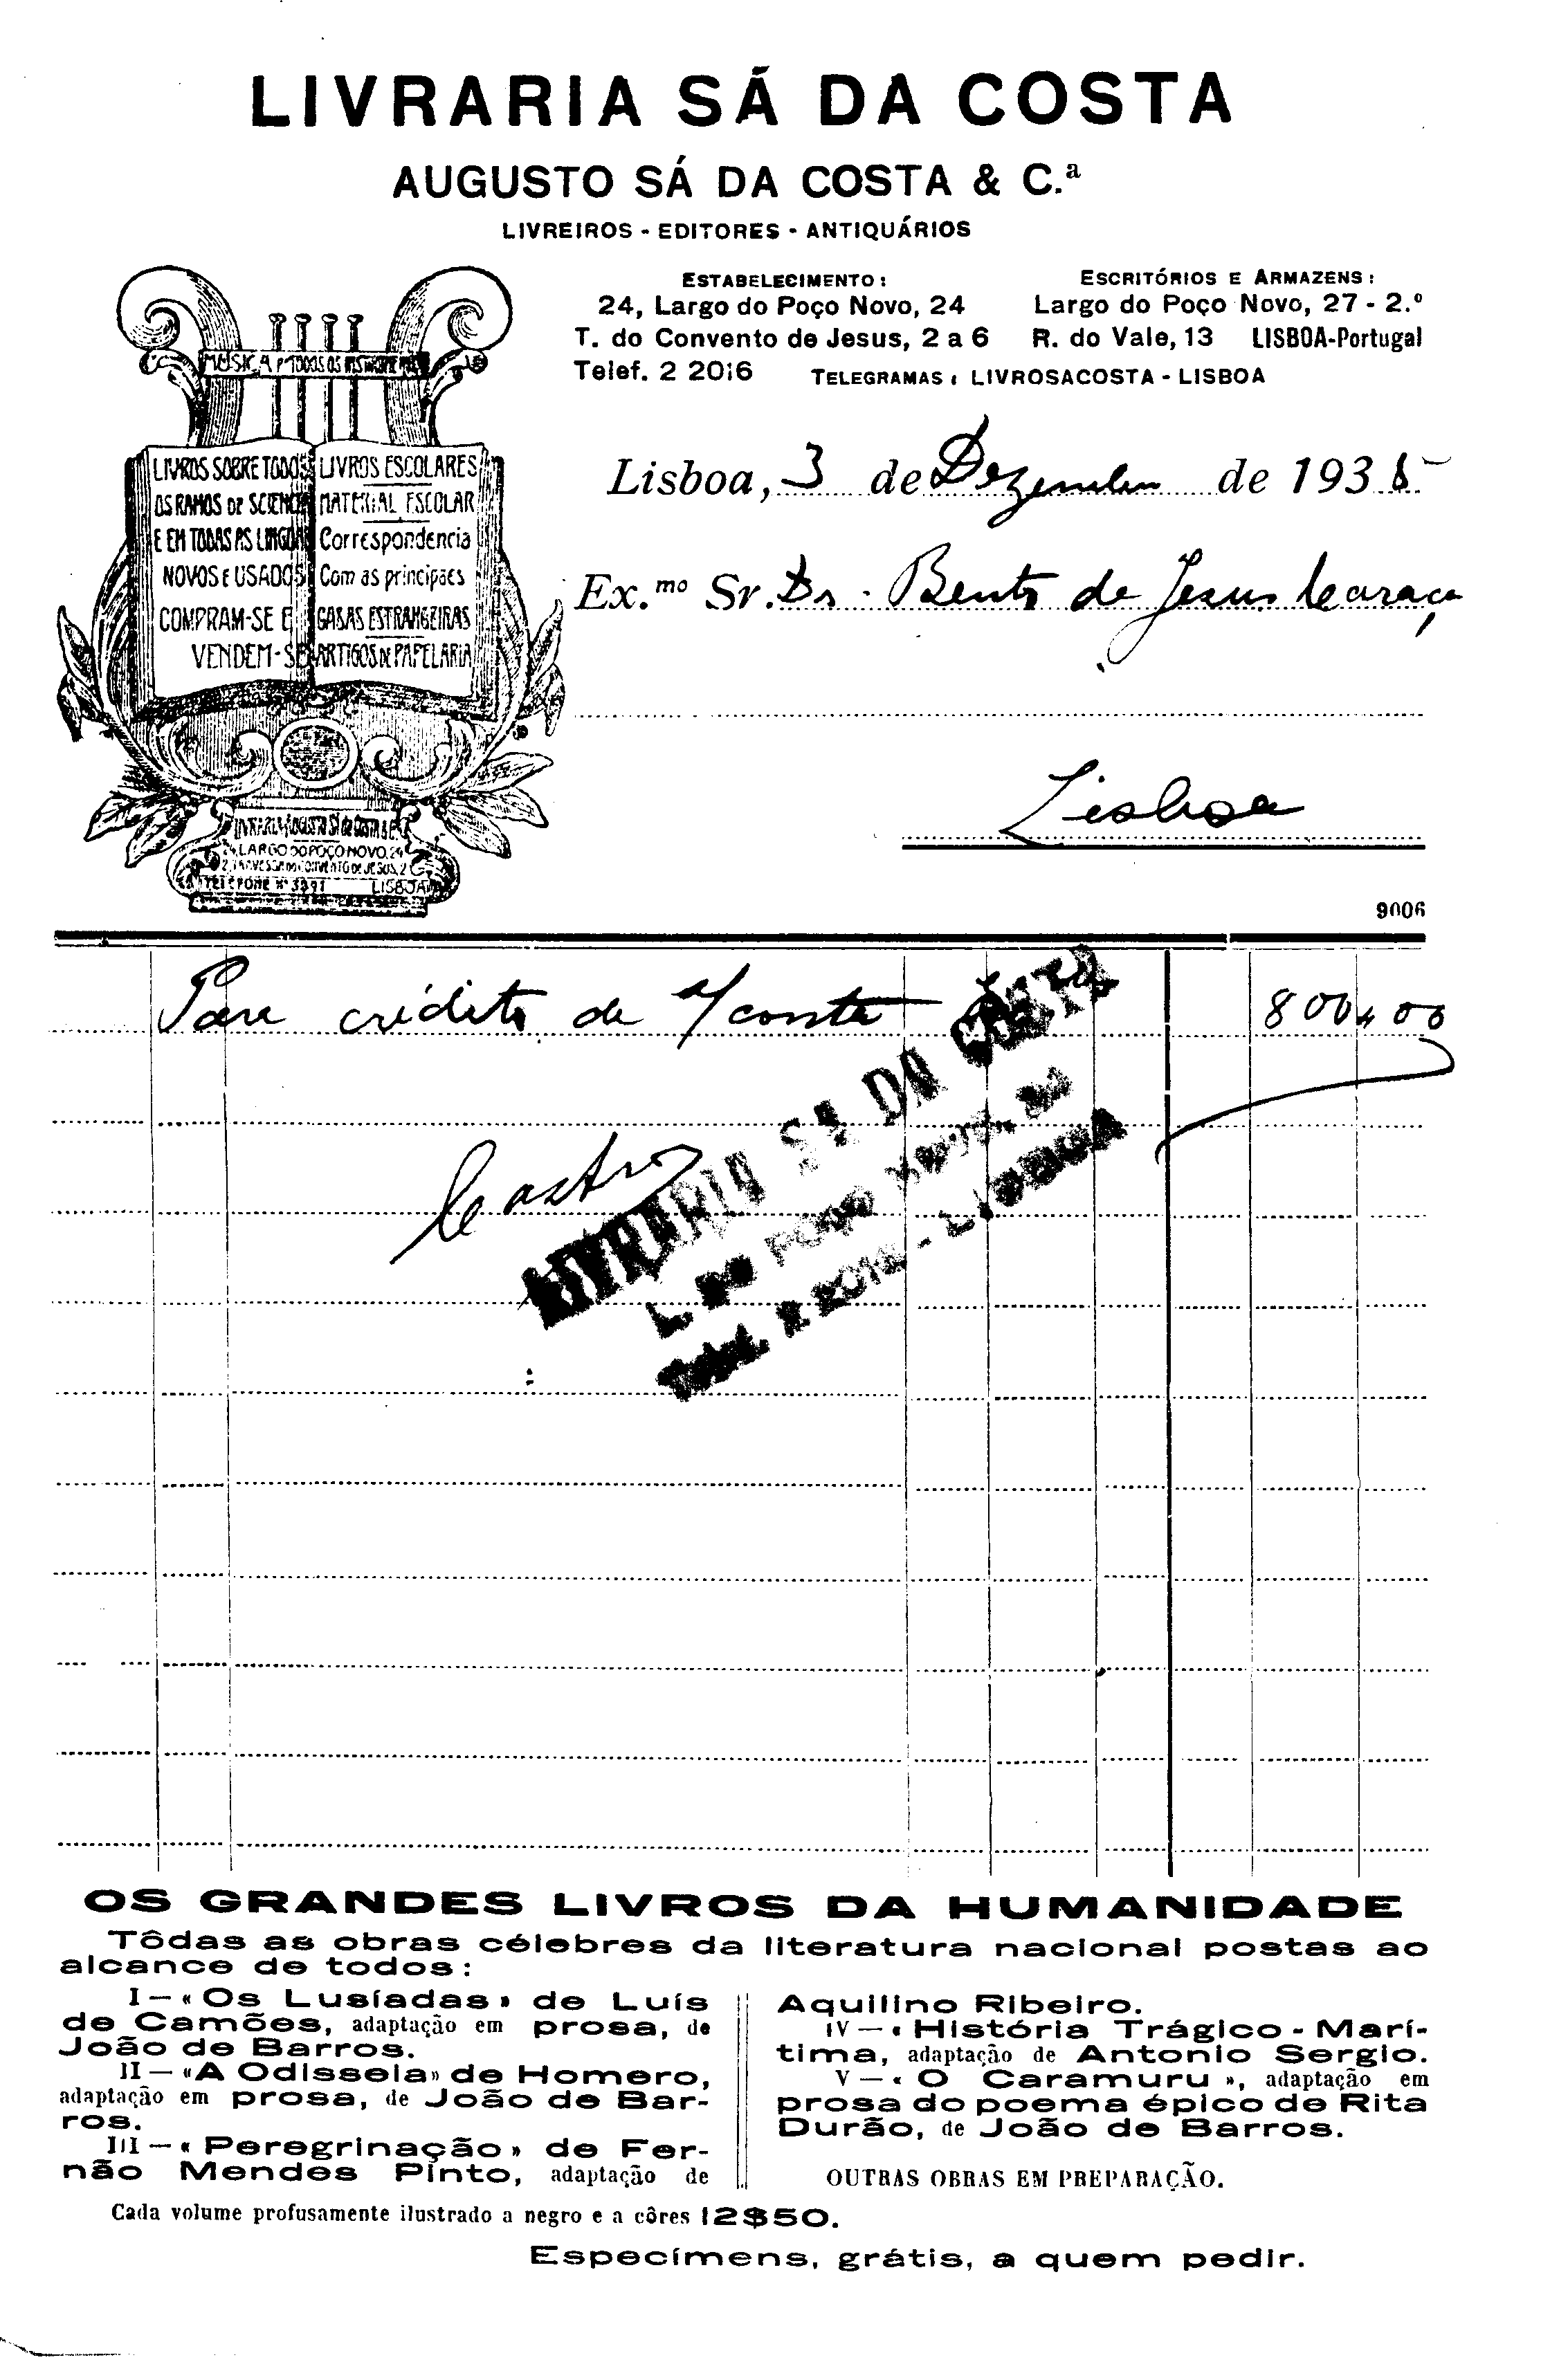 LIVRARIA SÁ DA COSTA
AUGUSTO SÁ DA COSTA & C.ª
LIVREIROS - EDITORES - ANTIQUÁRIOS
ESTABELECIMENTO:
24, Largo do Poço Novo, 24
T. do Convento de Jesus, 2 a 6
Telef. 2 2016
ESCRITÓRIOS E ARMAZENS:
Largo do Poço Novo, 27 - 2.º
R. do Vale, 13 LISBOA-Portugal
TELEGRAMAS: LIVROSACOSTA - LISBOA
MUSICA P.ª TODOS OS
LIVROS SOBRE TODOS
OS RAMOS DE SCIENCIA
E EM TODAS AS LINGOAS
NOVOS E USADOS
COMPRAM-SE E
VENDEM-SE
LIVROS ESCOLARES
MATERIAL ESCOLAR
Correspondencia
Com as principaes
CASAS ESTRANGEIRAS
ARTIGOS DE PAPELARIA
LARGO DO POÇO NOVO, 24
TELEFONE Nº LISBOA
Lisboa, 3 de Dezembro de 1935
Ex.mo Sr. Dr. Bento de Jesus Caraça
Lisboa
9006
Para crédito de s/ conta 800$00
Castro
LIVRARIA SÁ DA COSTA
L. DO POÇO NOVO, 24
Telef. 2 2016 - LISBOA
OS GRANDES LIVROS DA HUMANIDADE
Tôdas as obras célebres da literatura nacional postas ao
alcance de todos:
I — «Os Lusíadas» de Luís
de Camões, adaptação em prosa, de
João de Barros.
II — «A Odisseia» de Homero,
adaptação em prosa, de João de Bar-
ros.
III — «Peregrinação» de Fer-
não Mendes Pinto, adaptação de
Aquilino Ribeiro.
IV — «História Trágico-Marí-
tima, adaptação de Antonio Sergio.
V — «O Caramuru», adaptação em
prosa do poema épico de Rita
Durão, de João de Barros.
OUTRAS OBRAS EM PREPARAÇÃO.
Cada volume profusamente ilustrado a negro e a côres 12$50.
Especímens, grátis, a quem pedir.